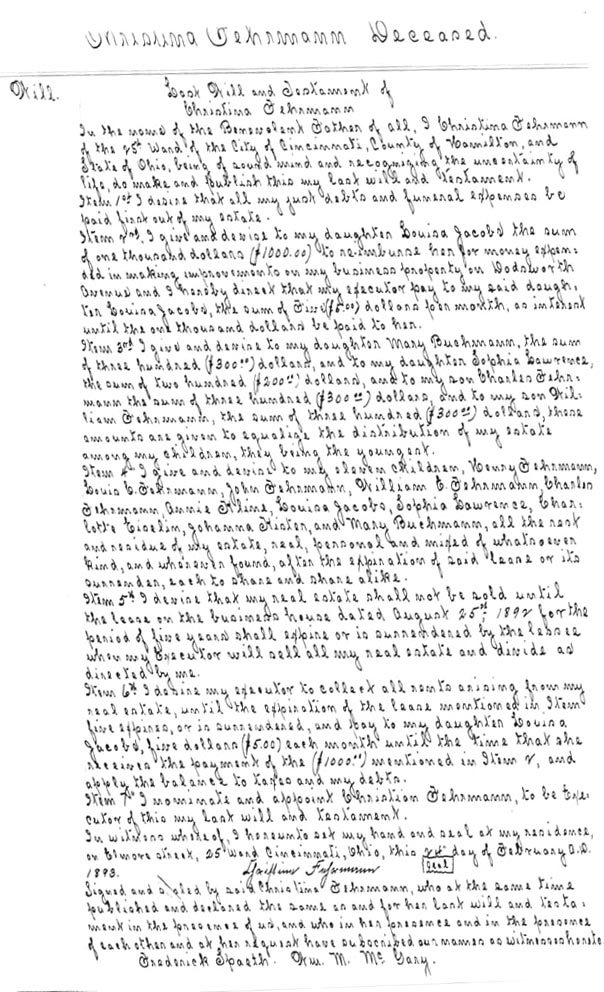 Christina Fehrmann Deceased.
Will.
Last Will and Testament of
Christina Fehrmann
In the name of the Benevolent Father of all, I Christina Fehrmann
of the 25th Ward of the City of Cincinnati, County of Hamilton, and
State of Ohio, being of sound mind and recognizing the uncertainty of
life, do make and publish this my last will and testament.
Item 1st I desire that all my just debts and funeral expenses be
paid first out of my estate.
Item 2nd, I give and devise to my daughter Louisa Jacobs the sum
of one thousand dollars ($1000.00) to re-imburse her for money expen:
ded in making improvements on my business property on Wodsworth
Avenue and I hereby direct that my executor pay to my said daugh:
ter Louisa Jacobs, the sum of Five ($5.00) dollars per month, as interest
until the one thousand dollars be paid to her.
Item 3rd I give and devise to my daughter Mary Buchmann, the sum
of three hundred ($300.00) dollars, and to my daughter Sophia Lawrence,
the sum of two hundred ($200.00) dollars, and to my son Charles Fehr:
mann the sum of three hundred ($300.00) dollars, and to my son Wil:
liam Fehrmann, the sum of three hundred ($300.00) dollars, these
amounts are given to equalize the distribution of my estate
among my children, they being the youngest.
Item 4th I give and devise to my eleven children, Henry Fehrmann,
Louis C. Fehrmann, John Fehrmann, William E. Fehrmann, Charles
Fehrmann, Annie Kline, Louisa Jacobs, Sophia Lawrence, Char:
lotte Eiselin, Johanna Kister, and Mary Buchmann, all the rest
and residue of my estate, real, personal and mixed of whatsoever
kind, and wherever found, after the expiration of said lease or its
surrender, each to share and share alike.
Item 5th I devise that my real estate shall not be sold until
the lease on the business house dated August 25th, 1892 for the
period of five years shall expire or is surrendered by the lessee
when my Executor will sell all my real estate and divide as
directed by me.
Item 6th I desire my executor to collect all rents arising from my
real estate, until the expiration of the lease mentioned in Item
five expires, or is surrendered, and pay to my daughter Louisa
Jacobs, five dollars ($5.00) each month until the time that she
receives the payment of the ($1000.00) mentioned in Item 2, and
apply the balance to taxes and my debts.
Item 7th I nominate and appoint Christian Fehrmann, to be Exe:
cutor of this my last will and testament.
In witness whereof, I hereunto set my hand and seal at my residence,
on Elmore street, 25 Ward Cincinnati, Ohio, this day of February A.D.
1893. Seal
Signed and sealed by said Christina Fehrmann, who at the same time
published and declared the same as and for her last will and testa:
ment in the presence of us, and who in her presence and in the presence
of each other and at her request have subscribed our names as witnesses hereto.
Frederick Spaeth. Wm. M. McGary.